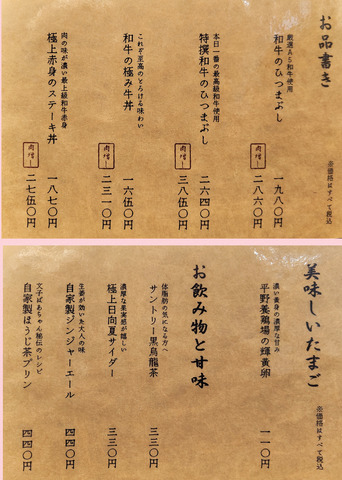 お品書き
※価格はすべて税込
厳選A5和牛使用
和牛のひつまぶし
一九八〇円
肉増し
二八六〇円
本日一番の最高級和牛使用
特撰和牛のひつまぶし
二六四〇円
肉増し
三八五〇円
これぞ至高のとろける味わい
和牛の極み牛丼
一六五〇円
肉増し
二三一〇円
肉の味が濃い最上級和牛赤身
極上赤身のステーキ丼
一八七〇円
肉増し
二七五〇円
美味しいたまご
※価格はすべて税込
濃い黄身の濃厚な甘み
平野養鶏場の輝黄卵
一一〇円
お飲み物と甘味
体脂肪の気になる方へ
サントリー黒烏龍茶
三三〇円
濃厚な果実感が嬉しい
極上日向夏サイダー
三三〇円
生姜が効いた大人の味
自家製ジンジャーエール
四四〇円
文子ばあちゃん秘伝のレシピ
自家製ほうじ茶プリン
四四〇円